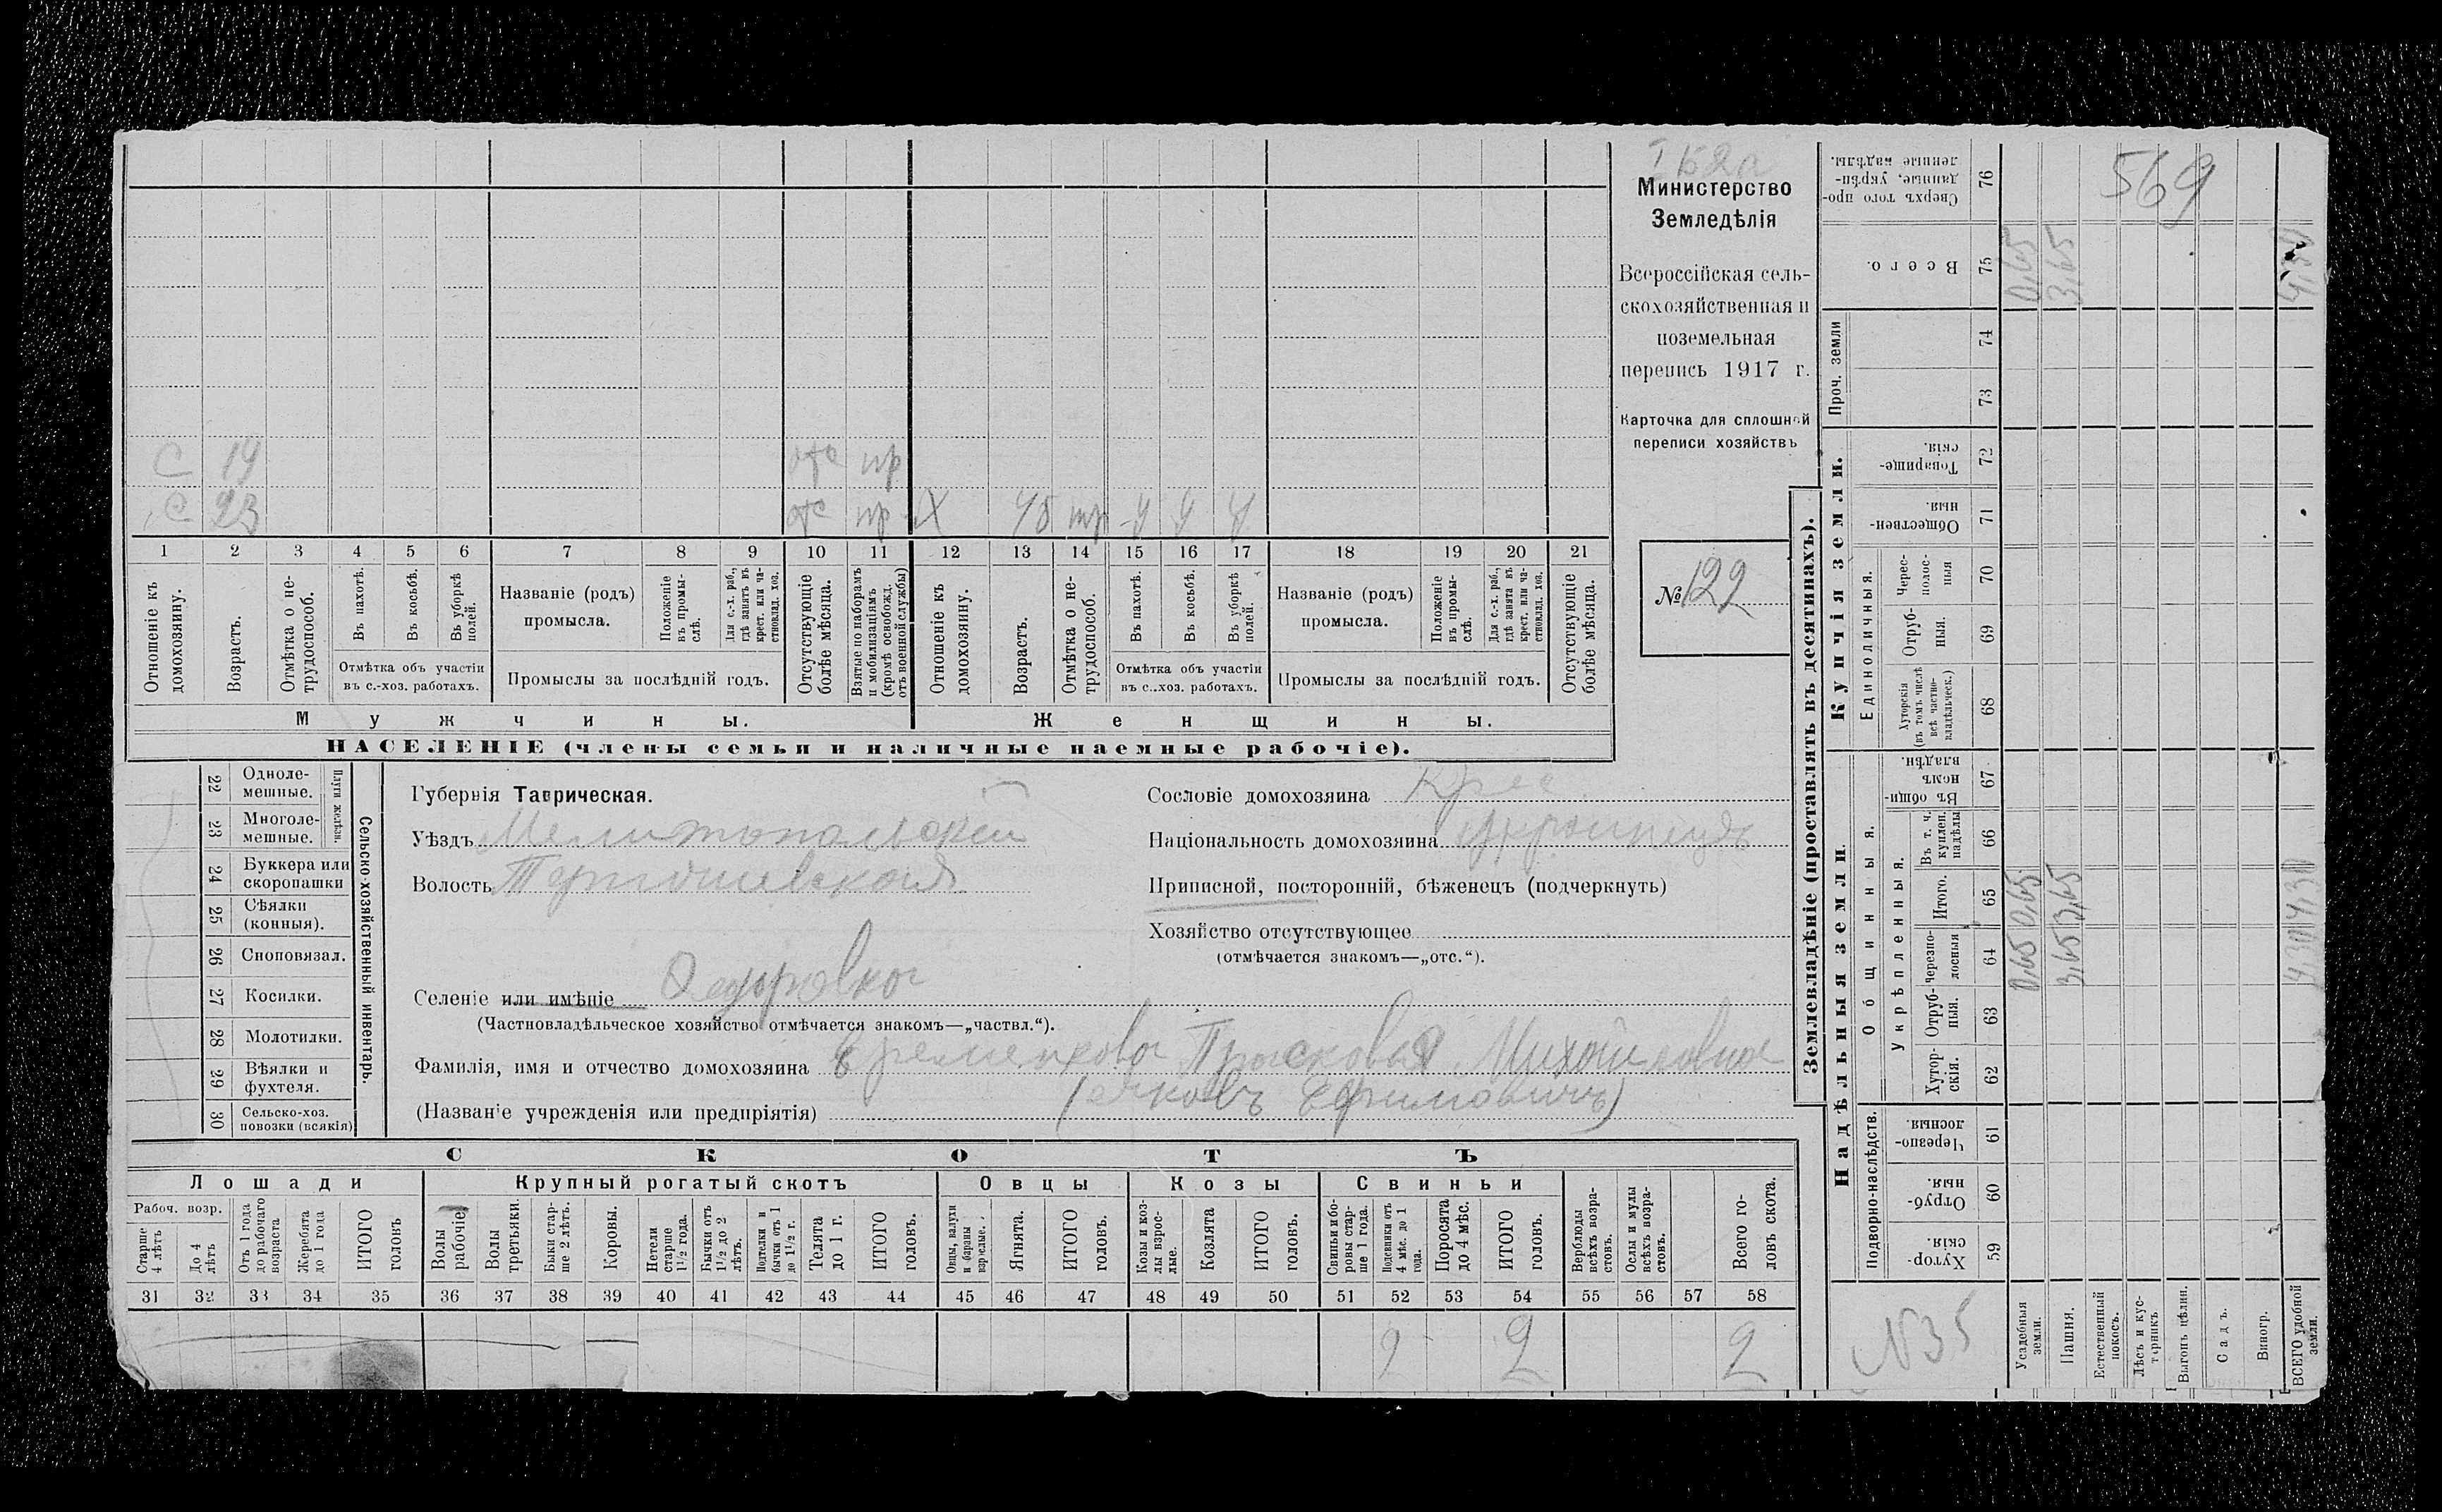 Министерство
Земледѣлія
Всероссійская сель-
скохозяйственная и
поземельная
перепись 1917 г.
Карточка для сплошной
переписи хозяйствъ
№ 122
С 19 отс пр
С 23 отс пр Х 45
1 2 3 4 5 6 7 8 9 10 11 12 13 14 15 16 17 18 19 20 21
Отношеніе къ домохозяину.
Возрастъ.
Отмѣтка о не-трудоспособ.
Въ пахотѣ.
Въ косьбѣ.
Въ уборкѣ полей.
Отмѣтка объ участіи
въ с.-хоз. работахъ.
Названіе (родъ)
промысла.
Положеніе въ промы-слѣ.
Для с.-х. раб., гдѣ занятъ въ крест. или ча-стновлад. хоз.
Промыслы за послѣдній годъ.
Отсутствующіе болѣе мѣсяца.
Взятые по наборамъ и мобилизаціямъ (кромѣ освобожд. отъ военной службы)
Отношеніе къ домохозяину.
Возрастъ.
Отмѣтка о не-трудоспособ.
Въ пахотѣ.
Въ косьбѣ.
Въ уборкѣ полей.
Отмѣтка объ участіи
въ с..хоз. работахъ.
Названіе (родъ)
промысла.
Положеніе въ промы-слѣ.
Для с.-х. раб., гдѣ занята въ крест. или ча-стновлад. хоз.
Промыслы за послѣдній годъ.
Отсутствующіе болѣе мѣсяца.
Мужчины. Женщины.
НАСЕЛЕНІЕ (члены семьи и наличные наемные рабочіе).
Сельско-хозяйственный инвентарь.
Плуги желѣзн.
22 Одноле-мешные.
23 Многоле-мешные.
24 Буккера или скоропашки
25 Сѣялки (конныя).
26 Сноповязал.
27 Косилки.
28 Молотилки.
29 Вѣялки и фухтеля.
30 Сельско-хоз. повозки (всякія)
Губернія Таврическая.
Уѣздъ Мелитопольскій
Волость
Селеніе или имѣніе
(Частновладѣльческое хозяйство отмѣчается знакомъ—„частвл.“).
Сословіе домохозяина Крес.
Національность домохозяина украинцы
Приписной, посторонній, бѣженецъ (подчеркнуть)
Хозяйство отсутствующее
(отмѣчается знакомъ—„отс.“).
Фамилія, имя и отчество домохозяина Прасковья Михайловна
(Названіе учрежденія или предпріятія) Ефимовичъ)
СКОТЪ
Лошади Крупный рогатый скотъ Овцы Козы Свиньи
Рабоч. возр.
Старше 4 лѣтъ
До 4 лѣтъ
Отъ 1 года до рабочаго возраста
Жеребята до 1 года
ИТОГО головъ
Волы рабочіе
Волы третьяки.
Быки стар-ше 2 лѣтъ.
Коровы.
Нетели старше 1½ года.
Бычки отъ 1½ до 2 лѣтъ.
Подтелки и бычки отъ 1 до 1½ г.
Телята до 1 г.
ИТОГО головъ.
Овцы, валухи и бараны взрослые.
Ягнята.
ИТОГО головъ.
Козы и коз-лы взрос-лые.
Козлята
ИТОГО головъ.
Свиньи и бо-ровы стар-ше 1 года.
Подсвинки отъ 4 мѣс. до 1 года.
Поросята до 4 мѣс.
ИТОГО головъ.
Верблюды всѣхъ возра-стовъ.
Ослы и мулы всѣхъ возра-стовъ.
Всего го-ловъ скота.
31 32 33 34 35 36 37 38 39 40 41 42 43 44 45 46 47 48 49 50 51 52 53 54 55 56 57 58
2 2 2
Землевладѣніе (проставлять въ десятинахъ).
Надѣльныя земли
Купчія земли.
Проч. земли
Подворно-наслѣдств.
Общинныя.
Укрѣпленныя.
Единоличныя.
Сверхъ того про-данные, укрѣп-ленные надѣлы. 76
Всего. 75 0,65 3,65 4,30
74
73
Товарище-скія. 72
Обществен-ныя. 71
Черес-полос-ныя 70
Отруб-ныя. 69
Хуторскія (въ томъ числѣ всѣ частно-владѣльческ.) 68
Въ общи-номъ владѣн. 67
Въ т. ч. куплен. надѣлы 66
Итого. 65 0,65 3,65 4,30
Черезпо-лосныя 64 0,65 3,65 4,30
Отруб-ныя. 63
Хутор-скія. 62
Черезпо-лосныя. 61
Отруб-ныя. 60
Хутор-скія. 59
569
N35
Усадебныя земли.
Пашня.
Естественный покосъ.
Лѣсъ и кус-тарникъ
Выгонъ цѣлин.
Садъ.
Виногр.
ВСЕГО удобной земли.